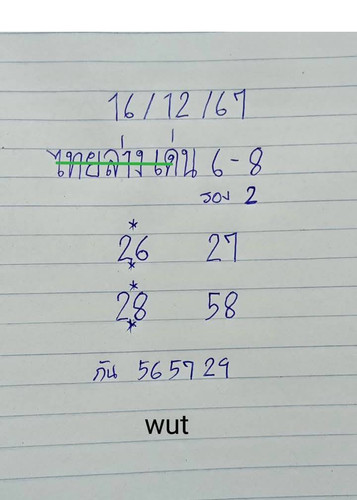 16/12/67
ไทยล่างเด่น 6-8
รอง 2
26 27
28 58
กัน 56 57 29
wut